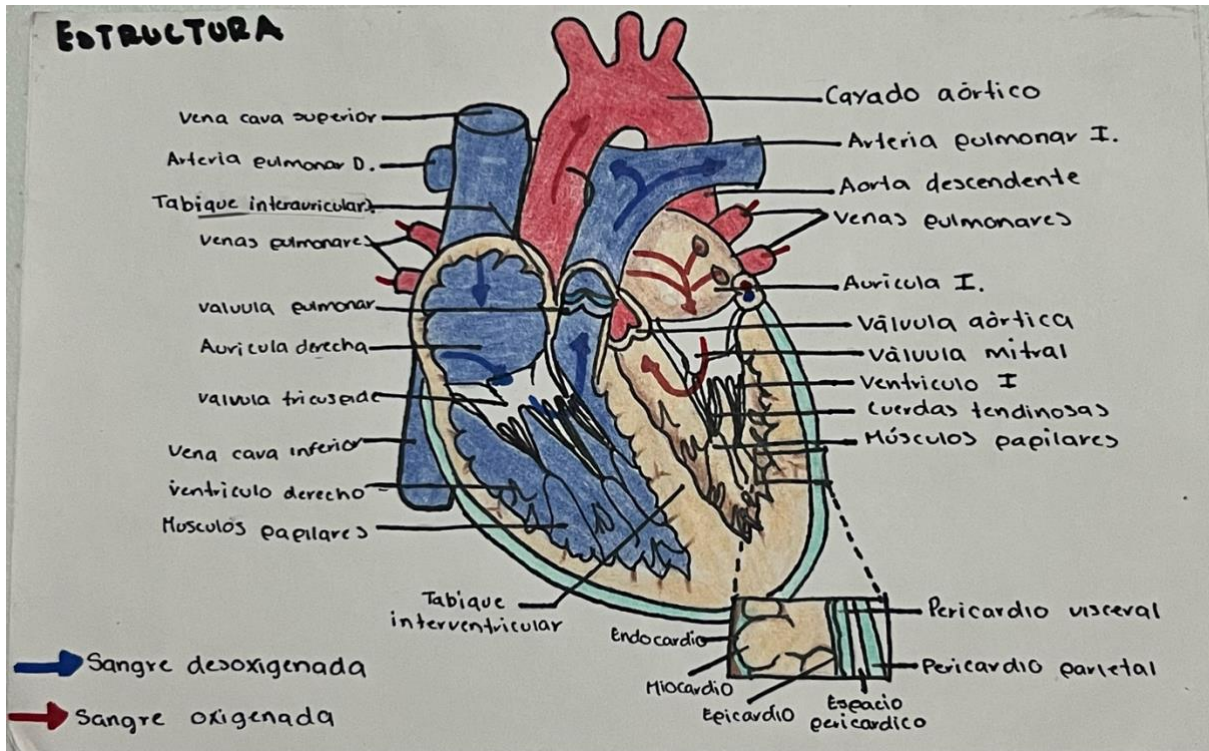 ESTRUCTURA
vena cava superior
Arteria pulmonar D.
Tabique interauricular
venas pulmonares
valvula pulmonar
Auricula derecha
valvula tricuspide
vena cava inferior
ventriculo derecho
Musculos papilares
Tabique
interventricular
Cayado aórtico
Arteria pulmonar I.
Aorta descendente
Venas pulmonares
Auricula I.
Válvula aórtica
Válvula mitral
Ventriculo I
Cuerdas tendinosas
Músculos papilares
Endocardio
Miocardio
Epicardio
Espacio
pericardico
Pericardio visceral
Pericardio parietal
Sangre desoxigenada
Sangre oxigenada